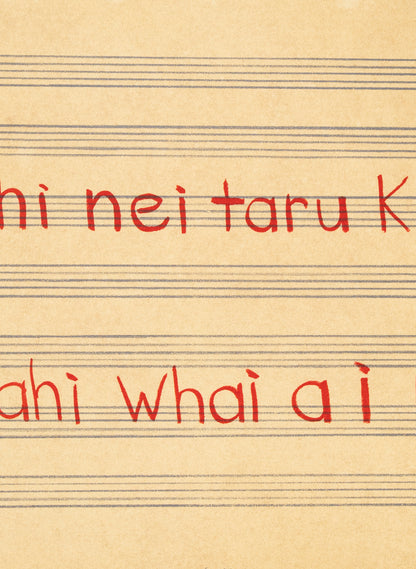 hi nei taru K
ahi whai a i